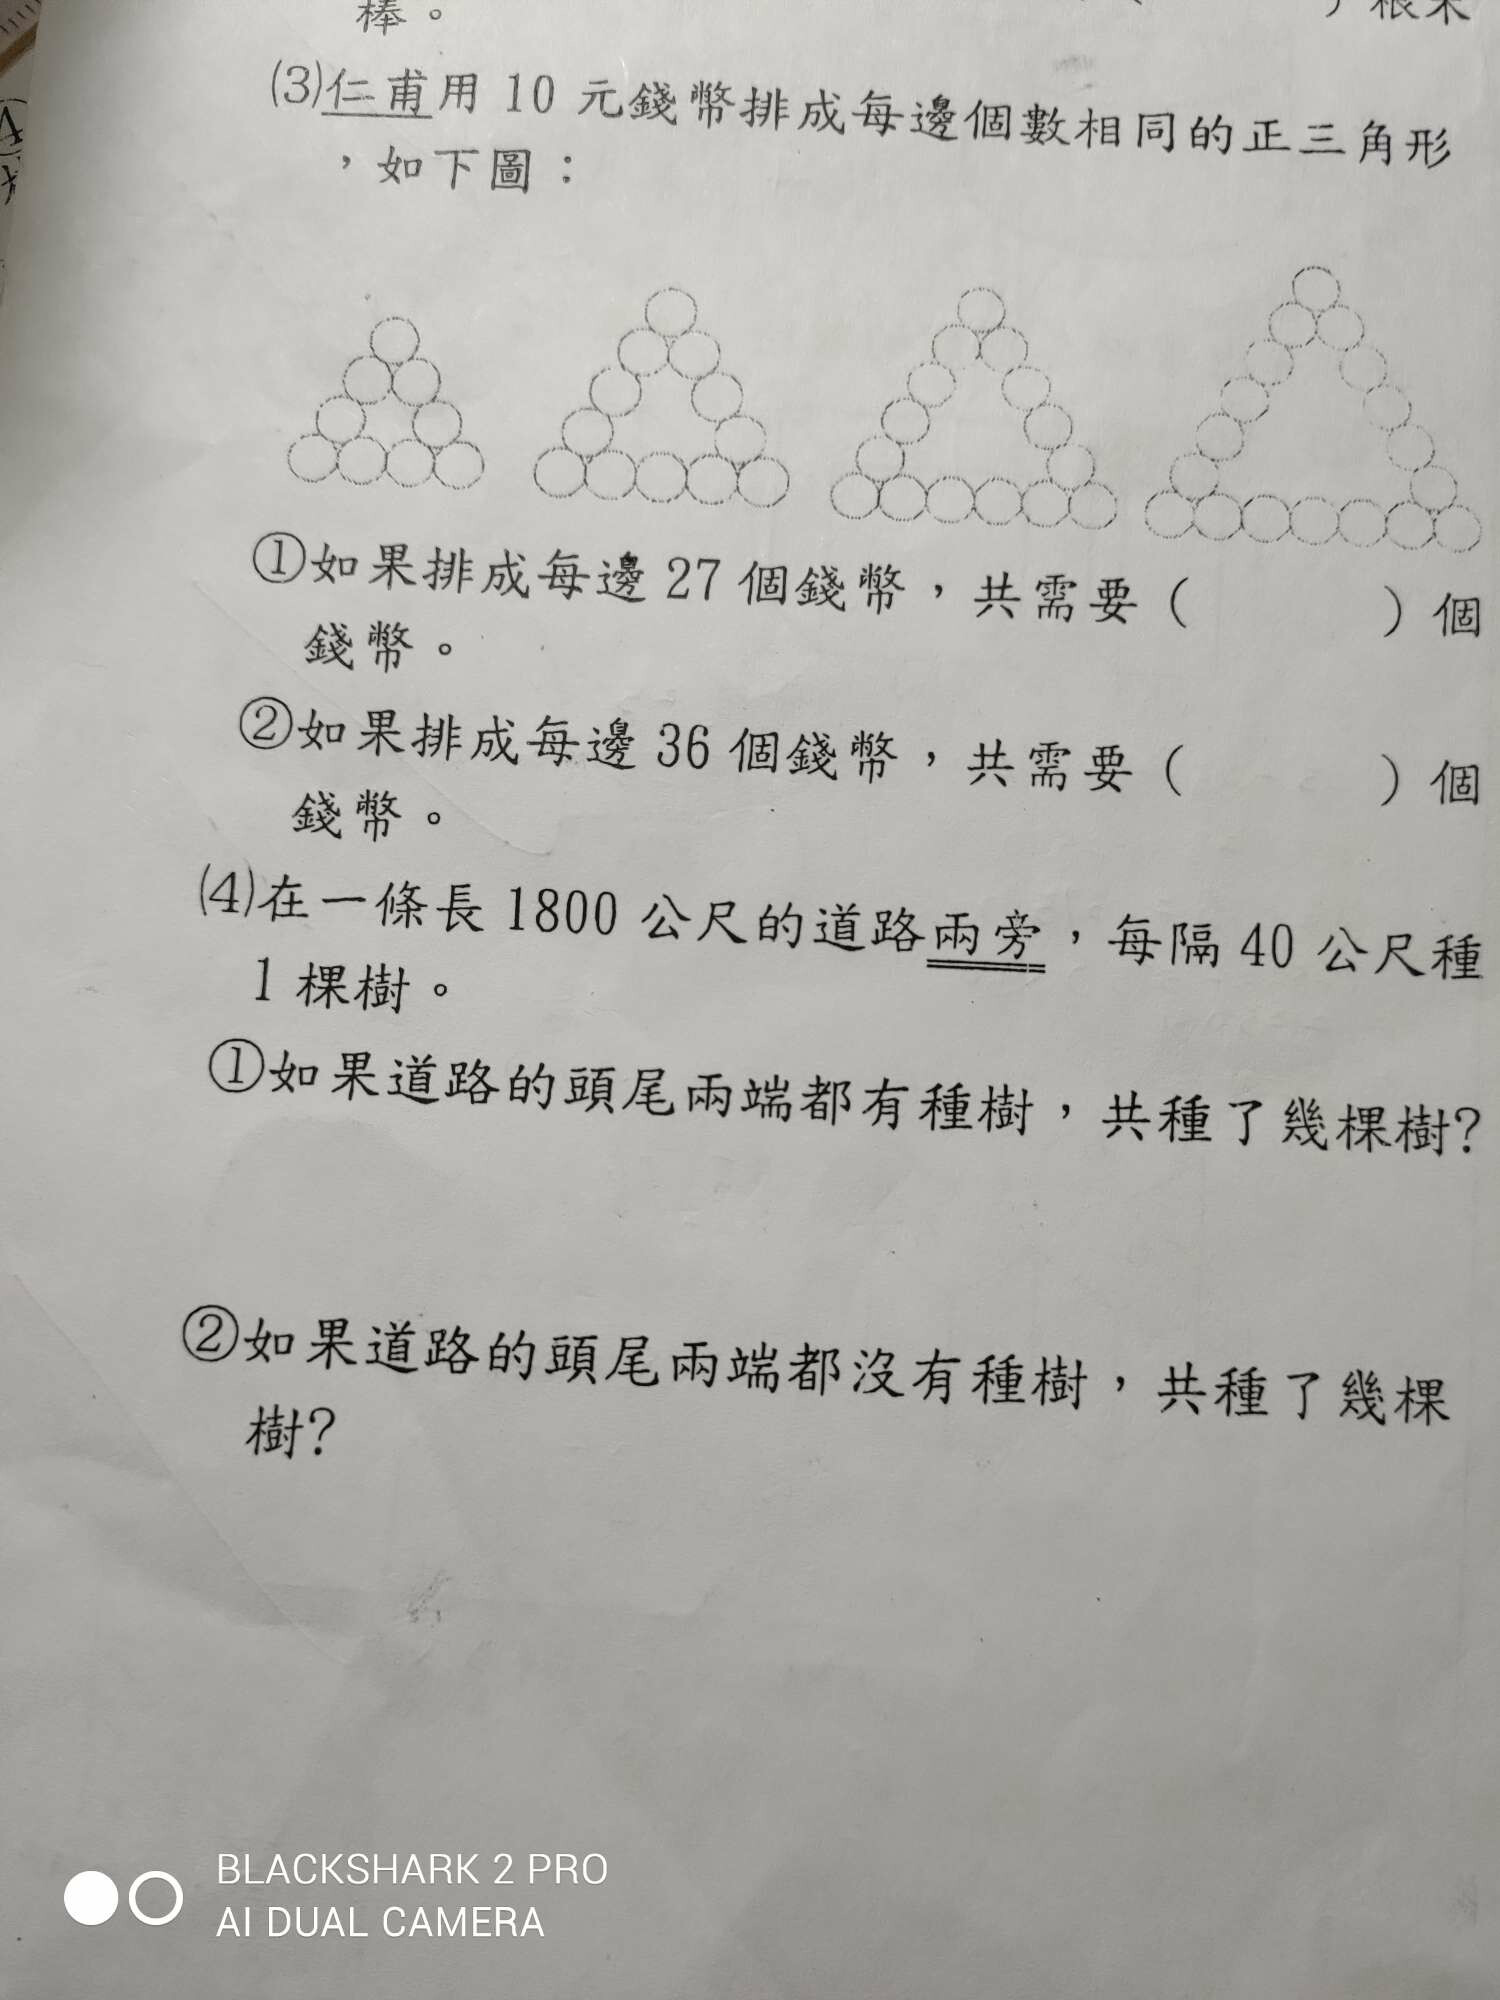 棒。
)根木
(3)仁甫用 10 元錢幣排成每邊個數相同的正三角形
，如下圖：
①如果排成每邊 27 個錢幣，共需要（　　）個
錢幣。
②如果排成每邊 36 個錢幣，共需要（　　）個
錢幣。
(4)在一條長 1800 公尺的道路兩旁，每隔 40 公尺種
1 棵樹。
①如果道路的頭尾兩端都有種樹，共種了幾棵樹?
②如果道路的頭尾兩端都沒有種樹，共種了幾棵
樹?
BLACKSHARK 2 PRO
AI DUAL CAMERA